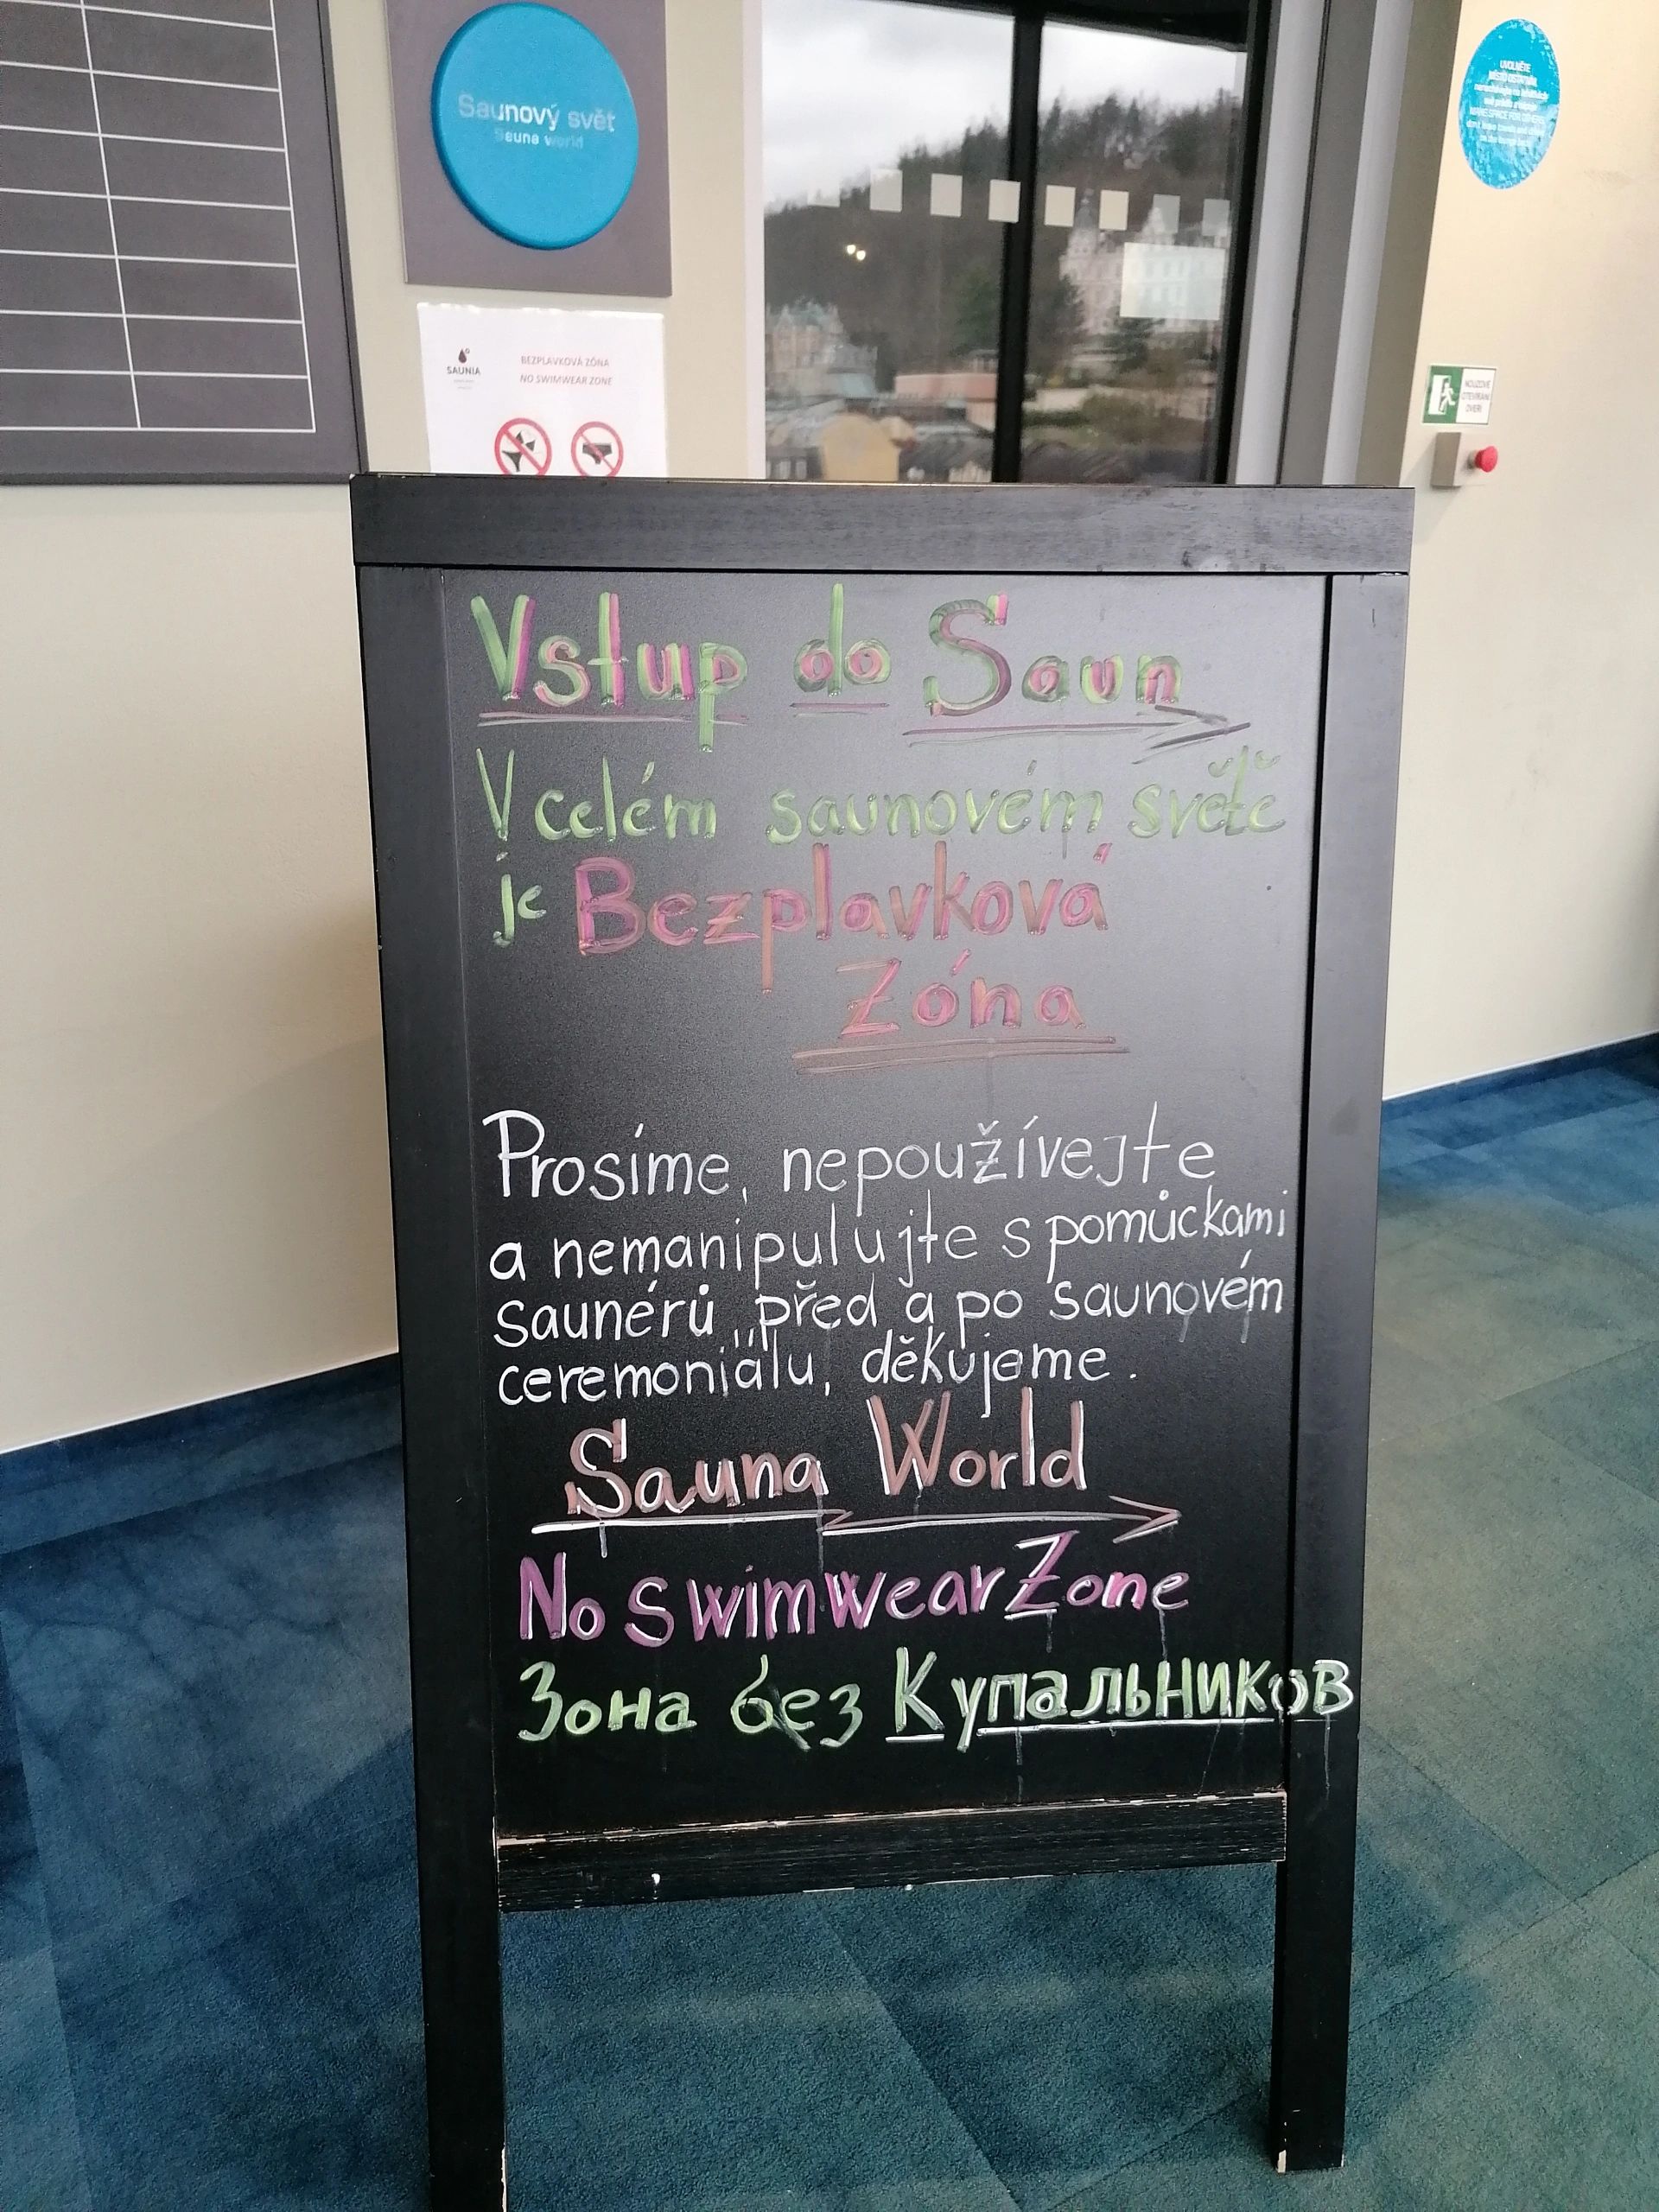 Saunový svět
Sauna world
UVOLNĚTE
MÍSTO OSTATNÍM
MAKE SPACE FOR OTHERS
SAUNIA
BEZPLAVKOVÁ ZÓNA
NO SWIMWEAR ZONE
NOUZOVÉ
OTEVÍRÁNÍ
DVEŘÍ
Vstup do Saun
V celém saunovém světě
je Bezplavková
Zóna
Prosíme, nepoužívejte
a nemanipulujte s pomůckami
saunérů „před a po saunovém
ceremoniálu, děkujeme.
Sauna World
No swimwear Zone
Зона без Купальников